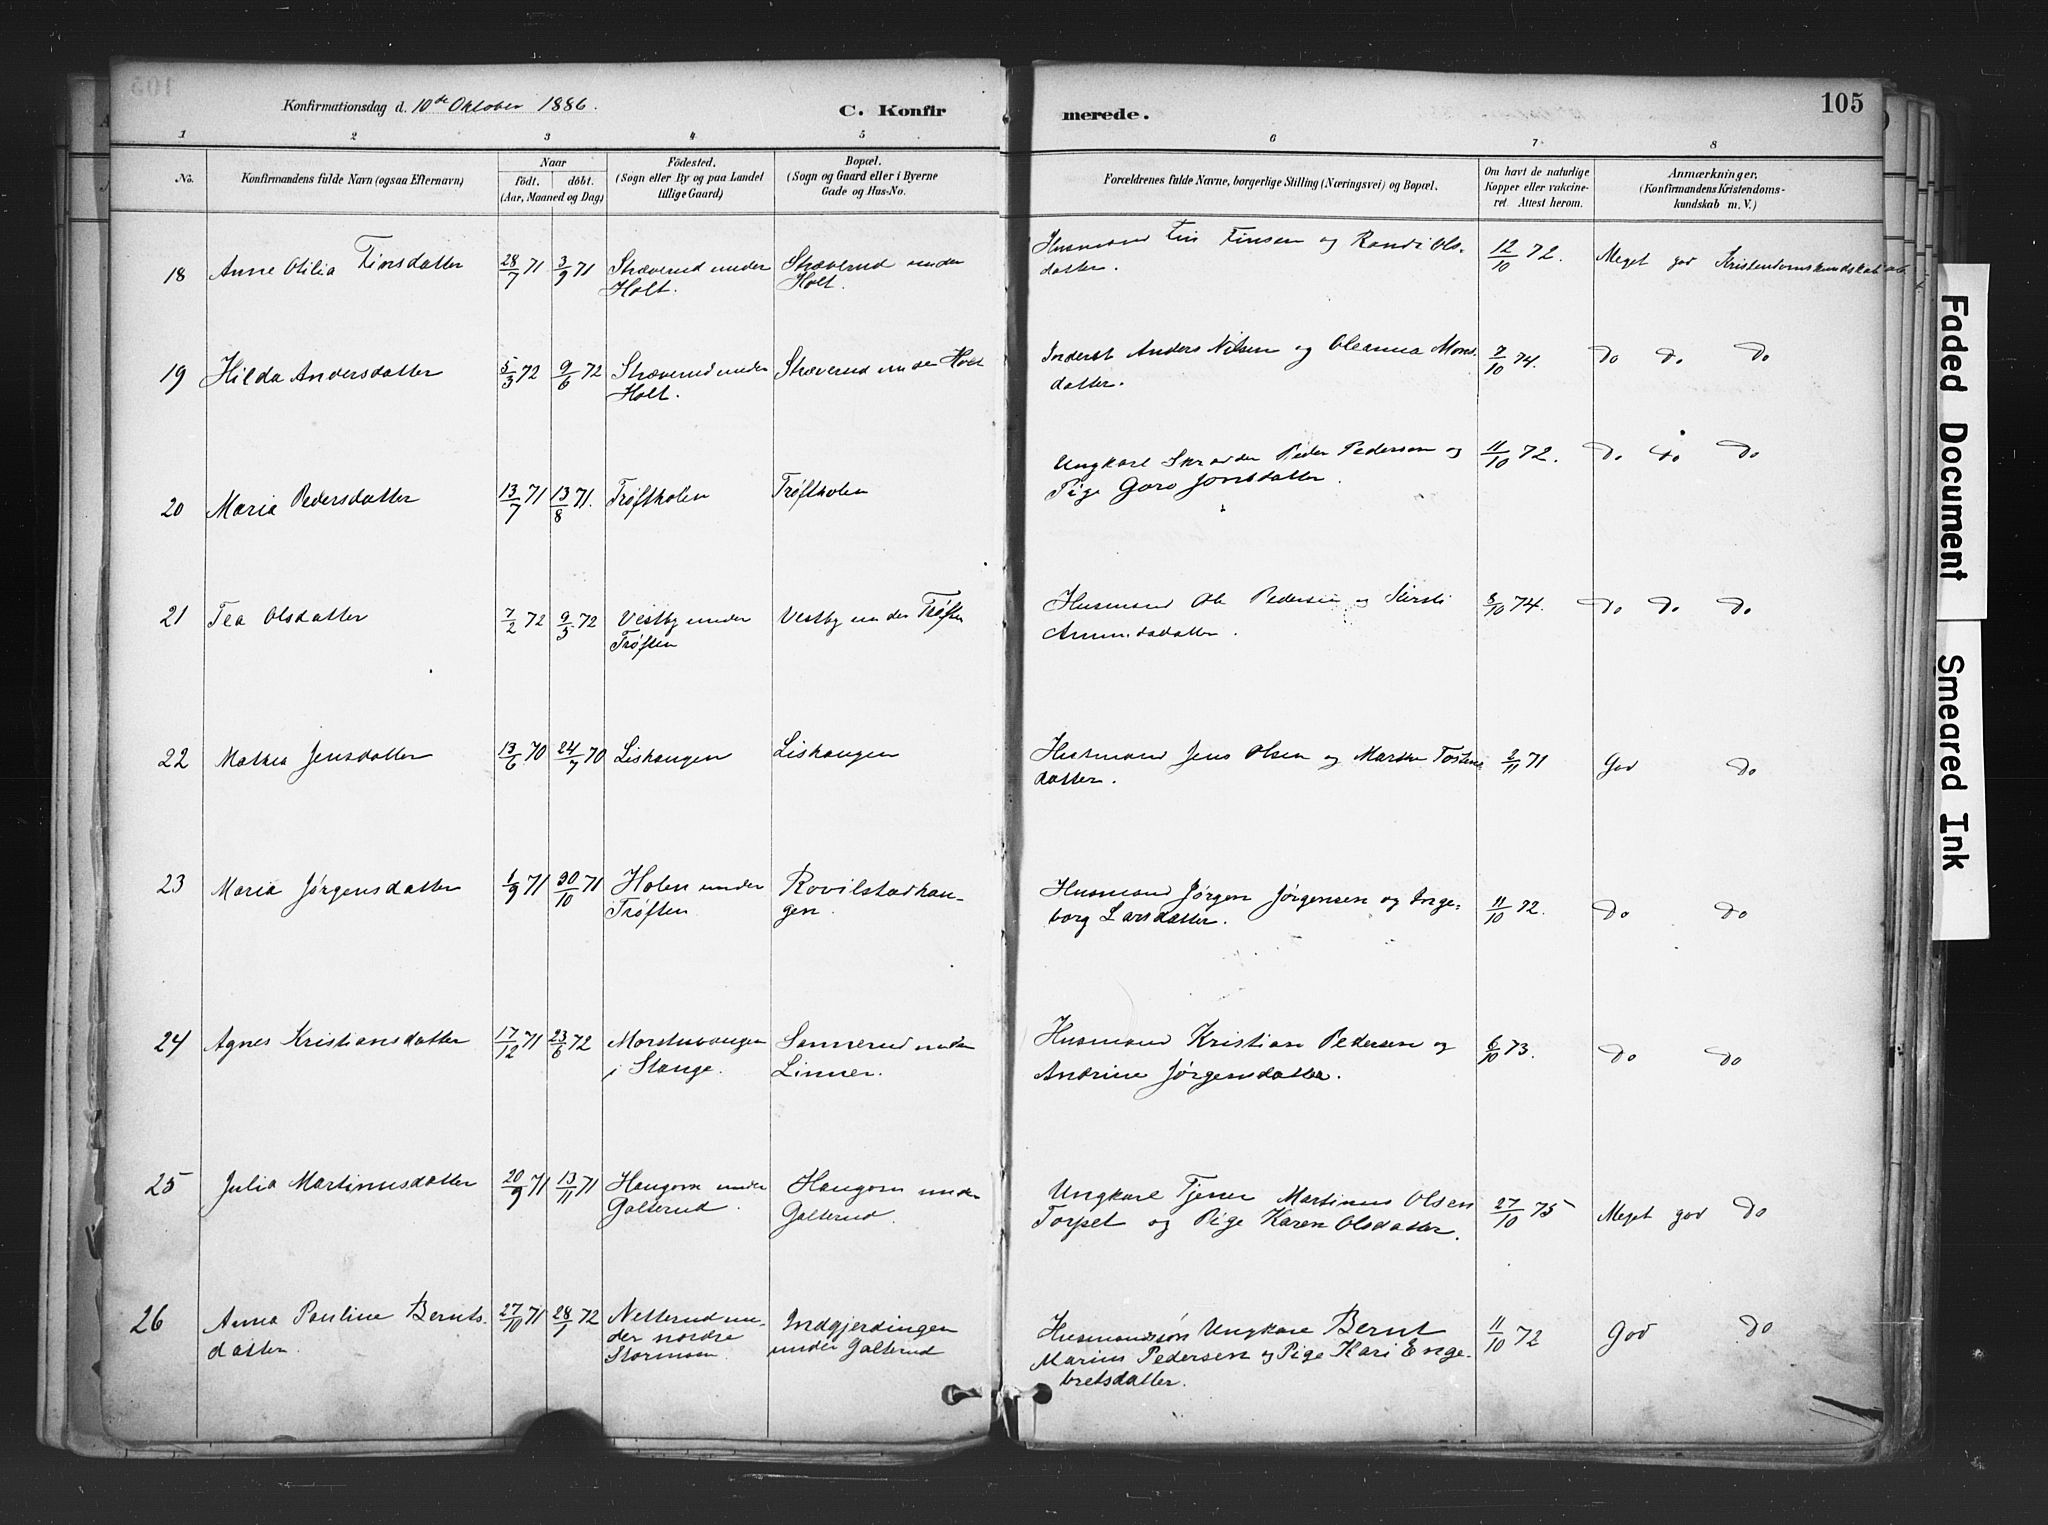 105
Konfirmationsdag d. 10de Oktober 1886.
C. Konfir
merede.
1 2 3 4 5 6 7 8
No.
Konfirmandens fulde Navn (ogsaa Efternavn)
Naar
födt. döbt.
(Aar, Maaned og Dag)
Födested.
(Sogn eller By og paa Landet
tillige Gaard)
Bopæl.
(Sogn og Gaard eller i Byerne
Gade og Hus-No.
Forældrenes fulde Navne, borgerlige Stilling (Næringsvei) og Bopæl.
Om havt de naturlige
Kopper eller vakcine-
ret. Attest herom.
Anmærkninger.
(Konfirmandens Kristendoms-
kundskab m. V.)
18 Anne Otilia Finsdatter 28/7 71 3/9 71 Stræverud under
Holt.
Stræverud under
Holt.
Husmand Fin Finsen og Randi Ols-
datter.
12/10 72. Meget god Kristendomskundskab
19 Hilda Andersdatter 5/3 72 9/6 72 Stræverud under
Holt.
Stræverud under Holt
Inderst Anders Nilsen og Oleanna Mons
datter.
7/10 74. Do Do Do
20 Maria Pedersdatter 13/7 71 13/8 71. Trøftholen Trøftholen
Ungkarl Skræder Peder Pedersen og
Pige Goro Jonsdatter.
11/10 72. Do Do Do
21 Tea Olsdatter 7/2 72 9/5 72 Vestby under
Trøften
Vestby under Trøften
Husmand Ole Pedersen og Kirsti
Amundsdatter.
3/10 74. Do Do Do
22 Mathea Jensdatter 13/6 70 24/7 70 Lishaugen Lishaugen
Husmand Jens Olsen og Marthe Tostens
datter.
2/11 71 God Do
23 Maria Jørgensdatter 1/9 71 30/10 71 Holen under
Trøften
Rovilstadhau-
gen.
Husmand Jørgen Jørgensen og Inge-
borg Larsdatter.
11/10 72. Do Do
24 Agnes Kristiansdatter 17/12 71 23/6 72 Morstuvangen
i Stange.
Sannerud under
Linner.
Husmand Kristian Pedersen og
Andrine Jørgensdatter.
6/10 73. Do Do
25 Julia Martinusdatter 20/9 71 13/11 71 Haugom under
Galterud.
Haugom under
Galterud.
Ungkarl Tjener Martinus Olsen
Torpet og Pige Karen Olsdatter.
27/10 75 Meget god Do
26 Anna Pauline Bernts-
datter.
27/10 71 28/1 72 Netterud un-
der nordre
Stormoen
Indgjerdingen
under Galterud
Husmandssøn Ungkarl Bernt
Marius Pedersen og Pige Kari Enge-
bretsdatter.
11/10 72 God Do
Faded Document
Smeared Ink